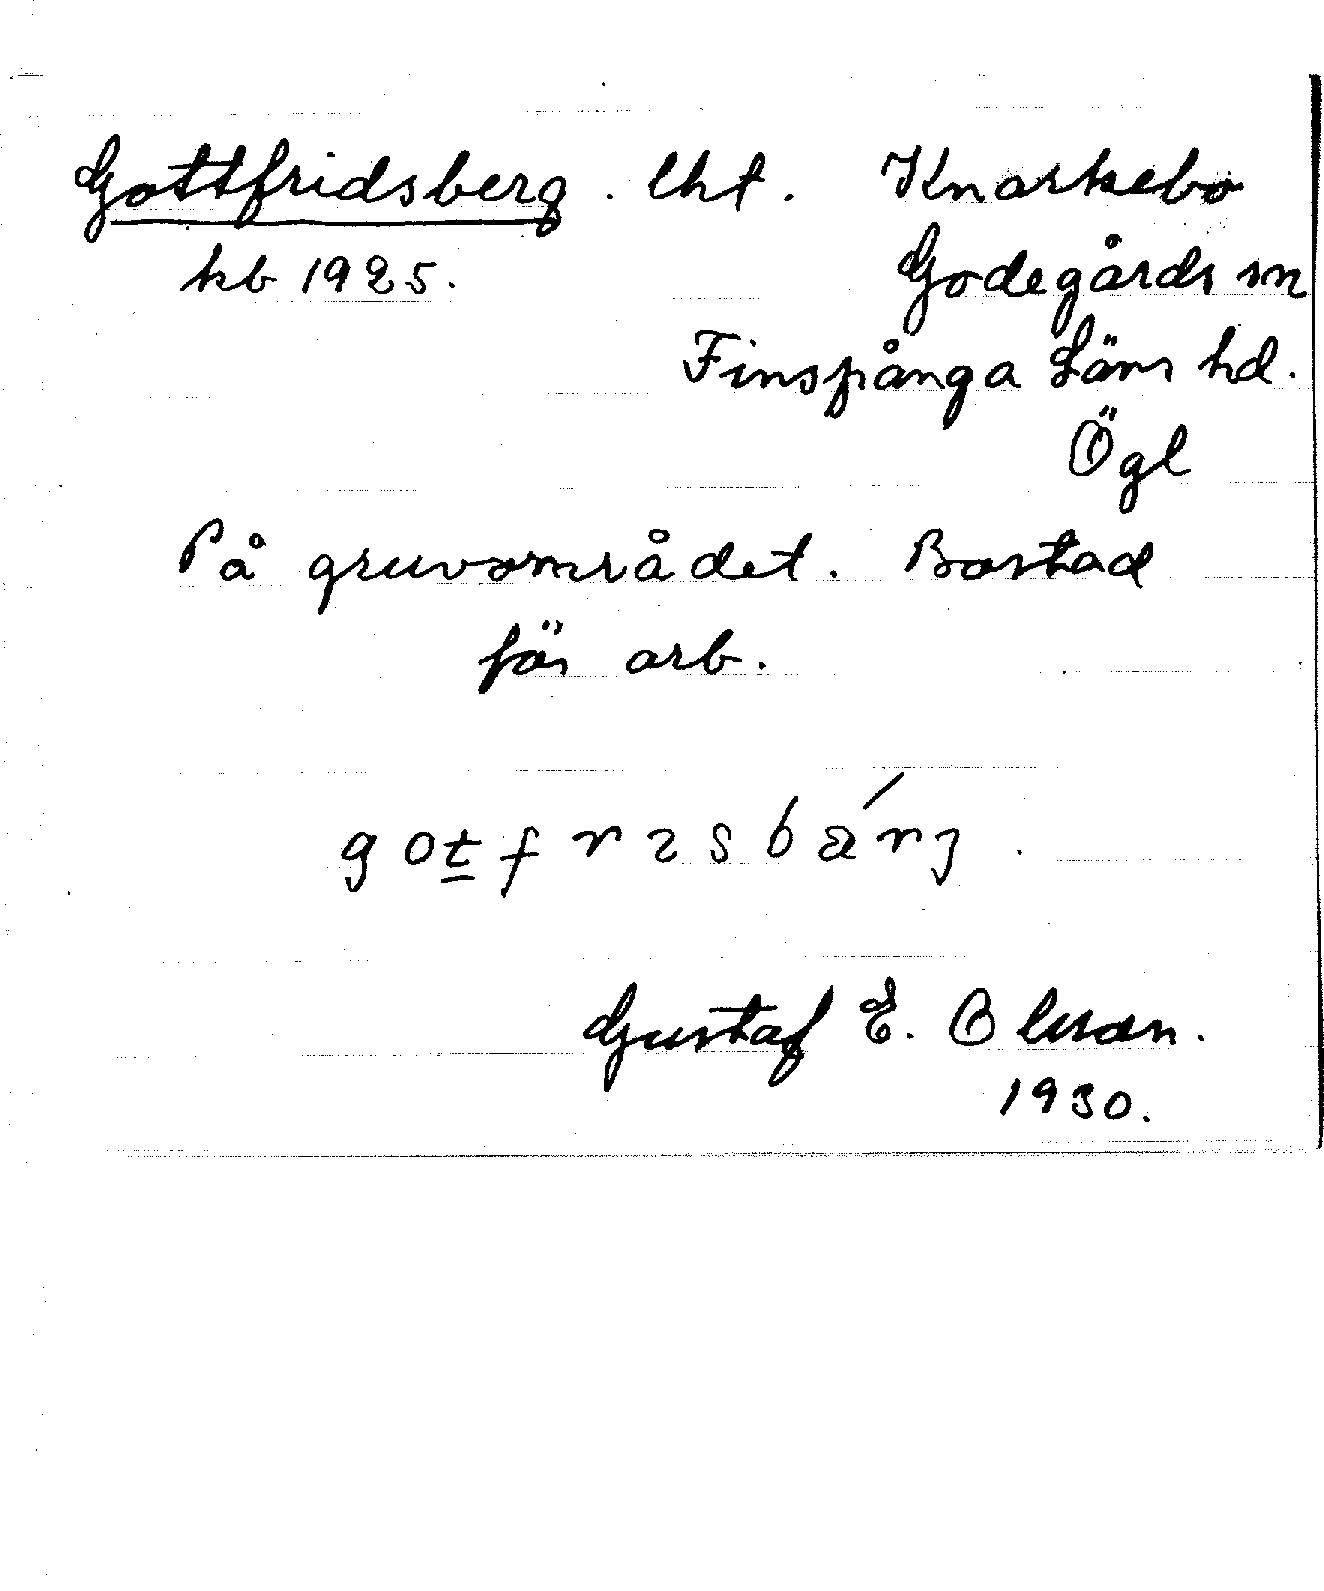 Gottfridsberg. lht. Knarkebo
kb 1925. Godegårds sn
Finspånga Läns hd.
Ögl
På gruvområdet. Bostad
för arb.
gotfrɩsbǽrj.
Gustaf E. Olsson.
1930.